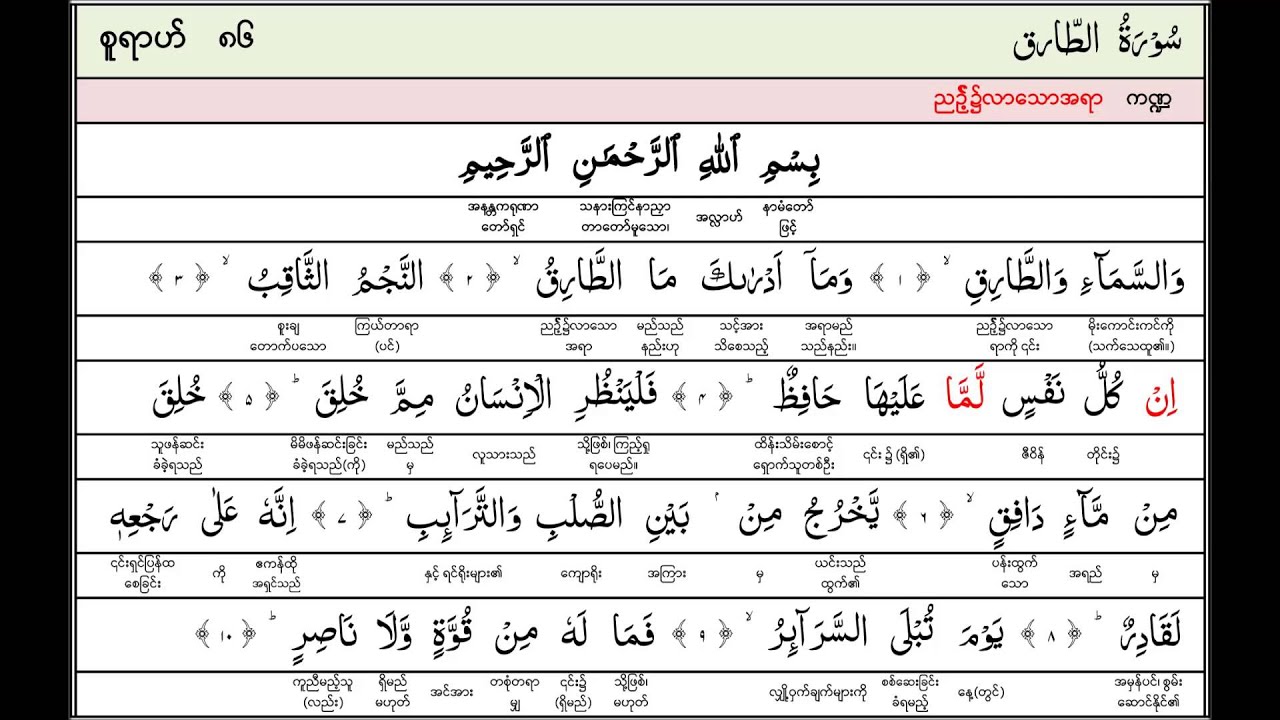 စူရာဟ် ၈၆ سُوْرَةُ الطَّارق
ည၌၌လာသောအရာ ကဏ္ဍ
بِسْمِ ٱللَّهِ ٱلرَّحْمَٰنِ ٱلرَّحِيمِ
နာမံတော် အလ္လာဟ် သနားကြင်နာညှာ အနန္တကရုဏာ
ဖြင့် တာတော်မူသော၊ တော်ရှင်
وَالسَّمَآءِ وَالطَّارِقِ ۙ ﴿١﴾ وَمَآ اَدْرٰىكَ مَا الطَّارِقُ ۙ ﴿٢﴾ النَّجْمُ الثَّاقِبُ ۙ ﴿٣﴾
မိုးကောင်းကင်ကို ည၌၌လာသော အရာမည် သင့်အား မည်သည် ည၌၌လာသော ကြယ်တာရာ စူးချ
(သက်သေထူ၏။) ရာကို ၎င်း သည်နည်း။ သိစေသည့် နည်းဟု အရာ (ပင်) တောက်ပသော
اِنْ كُلُّ نَفْسٍ لَّمَّا عَلَيْهَا حَافِظٌ ؕ ﴿۴﴾ فَلْيَنْظُرِ الْاِنْسَانُ مِمَّ خُلِقَ ؕ ﴿۵﴾ خُلِقَ
တိုင်း၌ ဇီဝိန် ၎င်း ၌ (ရှိ၏) ထိန်းသိမ်းစောင့် သို့ဖြစ်၊ ကြည့်ရှု လူသားသည် မည်သည် မိမိဖန်ဆင်းခြင်း သူဖန်ဆင်း
ရှောက်သူတစ်ဦး ရပေမည်။ မှ ခံခဲ့ရသည်(ကို) ခံခဲ့ရသည်
مِنْ مَّآءٍ دَافِقٍ ۙ ﴿٦﴾ يَّخْرُجُ مِنْۢ بَيْنِ الصُّلْبِ وَالتَّرَآىِٕبِ ؕ ﴿٧﴾ اِنَّهٗ عَلٰى رَجْعِهٖ
မှ အရည် ပန်းထွက် ယင်းသည် မှ အကြား ကျောရိုး နှင့် ရင်ရိုးများ၏ ဧကန်ထို ကို ၎င်းရှင်ပြန်ထ
သော ထွက်၏ အရှင်သည် စေခြင်း
لَقَادِرٌ ؕ ﴿٨﴾ يَوْمَ تُبْلَى السَّرَآىِٕرُ ۙ ﴿٩﴾ فَمَا لَهٗ مِنْ قُوَّةٍ وَّلَا نَاصِرٍ ؕ ﴿١٠﴾
အမှန်ပင်၊ စွမ်း နေ့(တွင်) စစ်ဆေးခြင်း လျှို့ဝှက်ချက်များကို သို့ဖြစ်၊ ၎င်း၌ တစုံတရာ အင်အား ရှိမည် ကူညီမည့်သူ
ဆောင်နိုင်၏ ခံရမည့် မဟုတ် (ရှိမည်) မျှ မဟုတ် (လည်း)